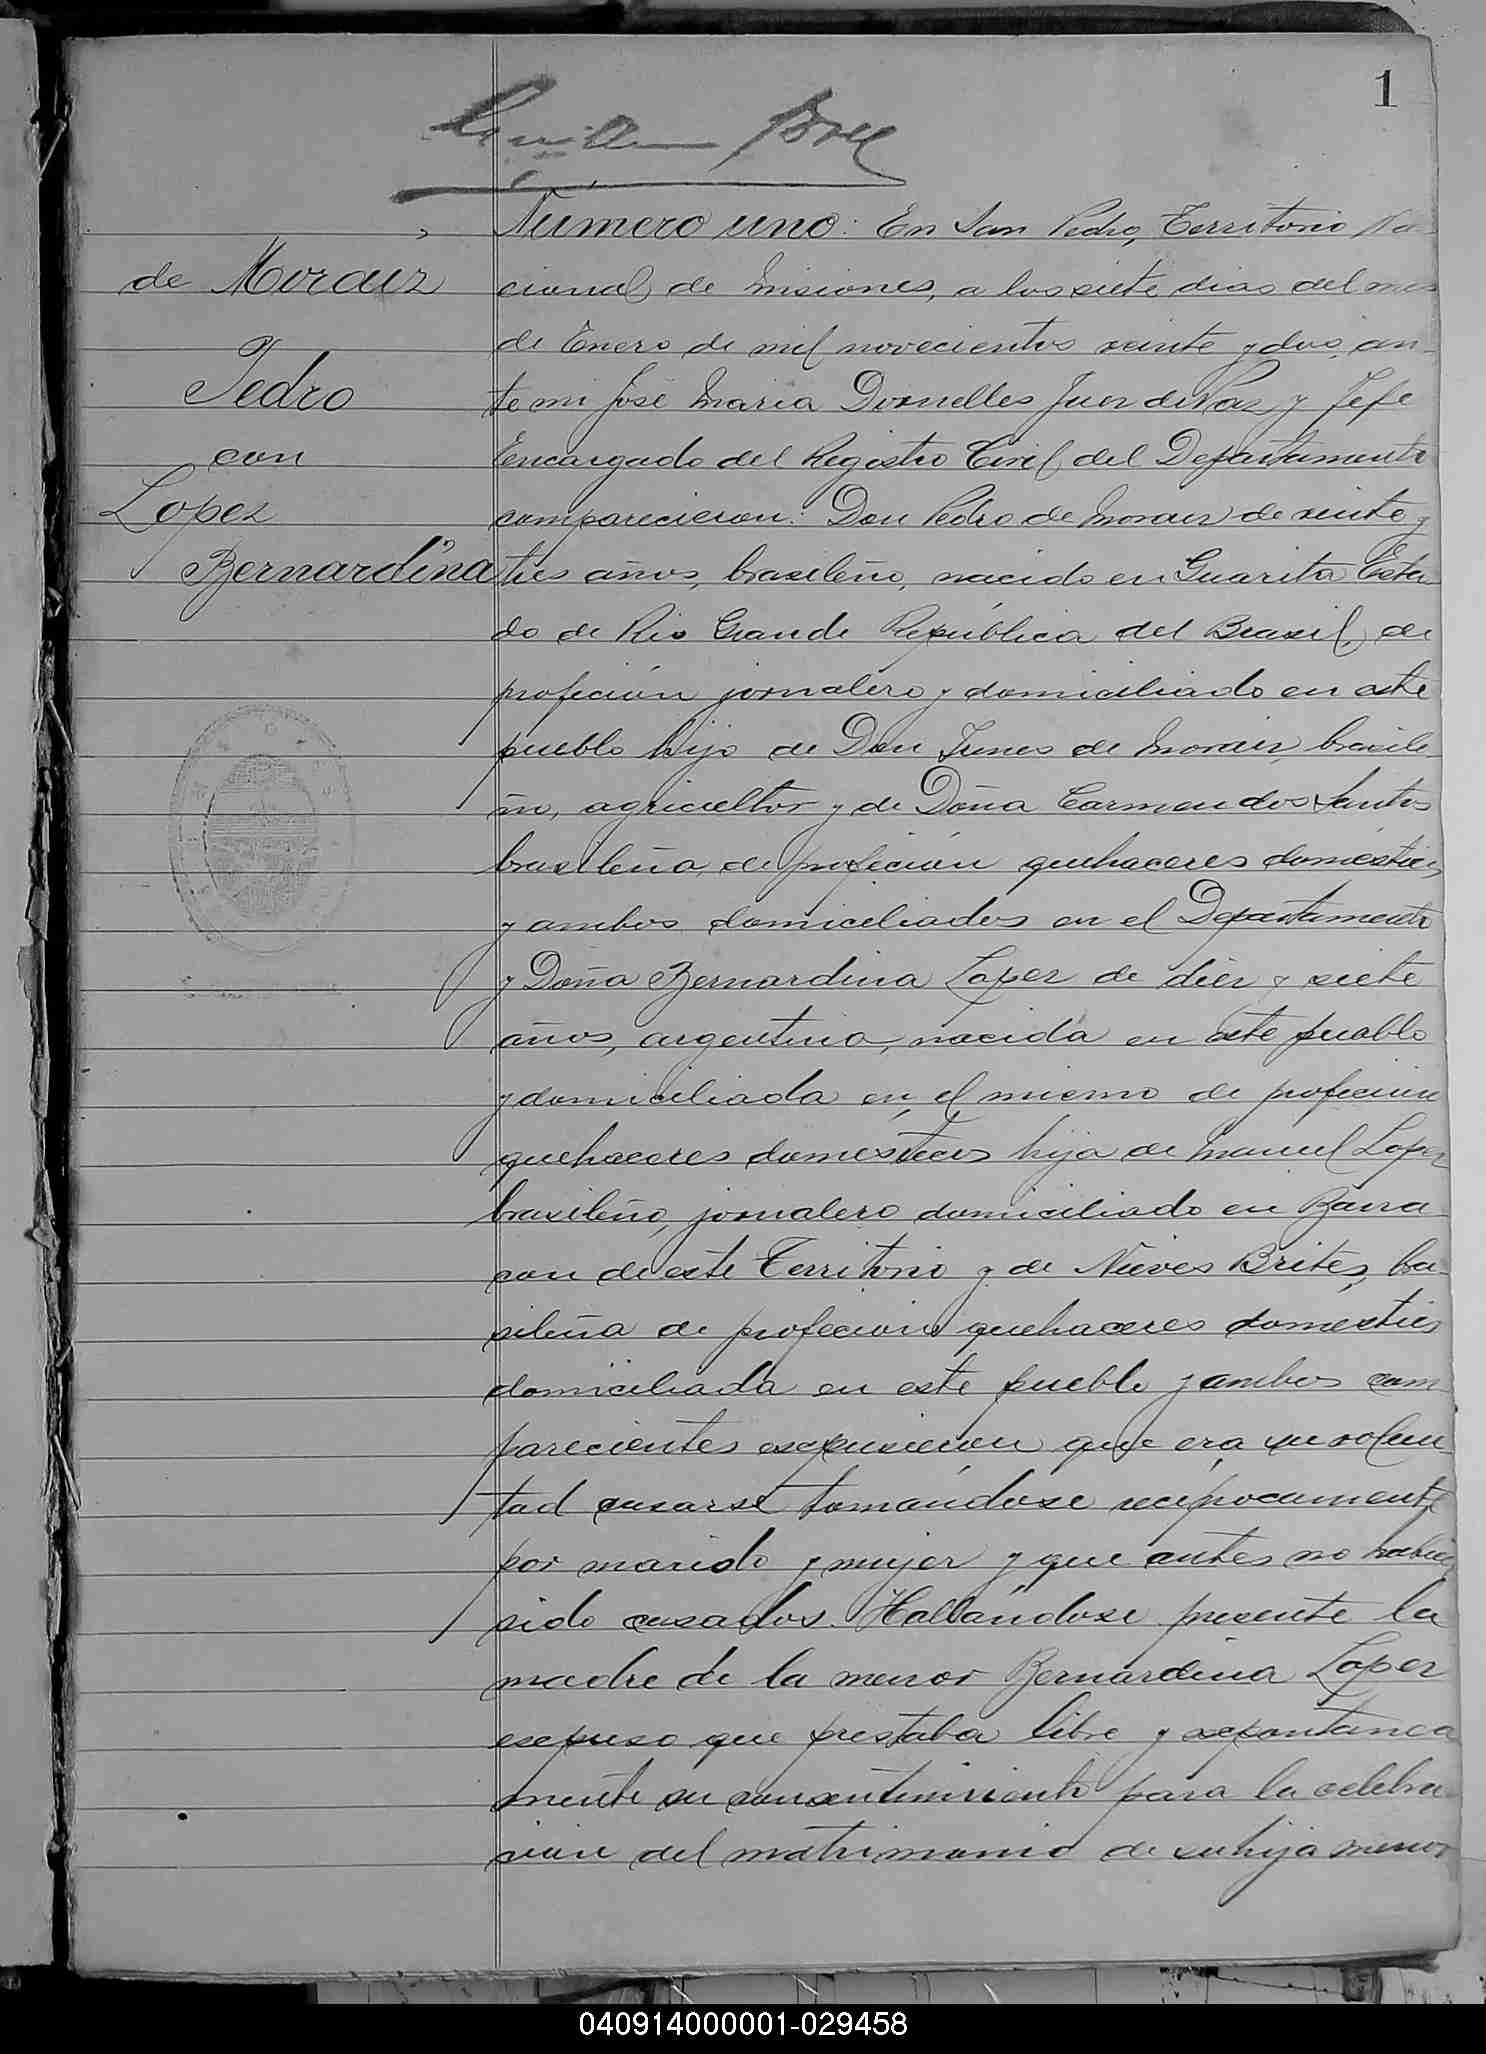 1
Número uno: En San Pedro, Territorio Na-
de Moraiz
cional de Misiones, a los siete dias del mes
de Enero de mil novecientos veinte y dos, an-
Pedro
te mi José Maria Dornelles Juez de Paz y Jefe
con
Encargado del Registro Civil del Departamento
Lopez
comparecieron: Don Pedro de Moraiz de veinte y
Bernardina
tres años, brasileño, nacido en Guarita Esta-
do de Rio Grande República del Brasil, de
profeción jornalero y domiciliado en este
pueblo hijo de Don de Moraiz, brasile-
ño, agricultor y de Doña Carmen dos Santos
brasileña, de profeción quehaceres domésticos
y ambos domiciliados en el Departamento
y Doña Bernardina Lopez de diez y siete
años, argentina, nacida en este pueblo
y domiciliada en el mismo de profecion
quehaceres domésticos hija de Manuel Lopez
brasileño, jornalero domiciliado en Barra-
con de este Territorio y de Nieves Brites, bra-
sileña de profecion quehaceres domésticos
domiciliada en este pueblo y ambos com-
parecientes expusieron que era su volun-
tad casarse tomándose recíprocamente
por marido y mujer y que antes no habian
sido casados. Hallándose presente la
madre de la menor Bernardina Lopez
expuso que prestaba libre y espontanea
mente su consentimiento para la celebra-
cion del matrimonio de su hija menor
040914000001-029458